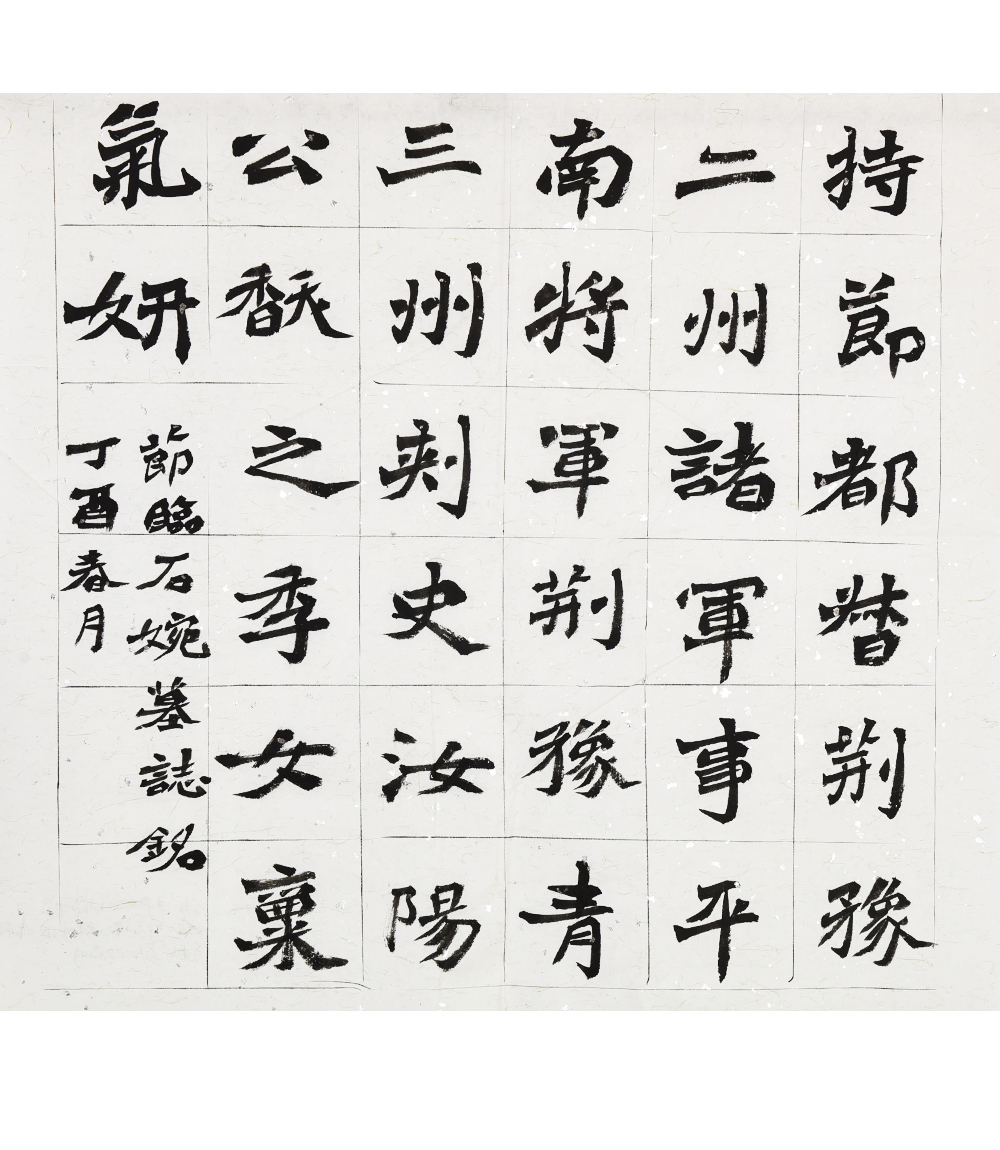 持節都督荆豫
二州諸軍事平
南將軍荆豫青
三州刺史汝陽
公馛之季女稟
氣妍
節臨石婉墓誌銘
丁酉春月